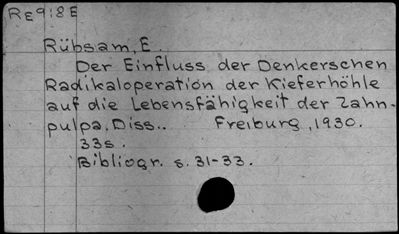 RE918E
Rübsam, E.
Der Einfluss der Denkerschen
Radikaloperation der Kieferhöhle
auf die Lebensfähigkeit der Zahn-
pulpa. Diss.. Freiburg, 1930.
33s.
Bibliogr. s. 31-33.